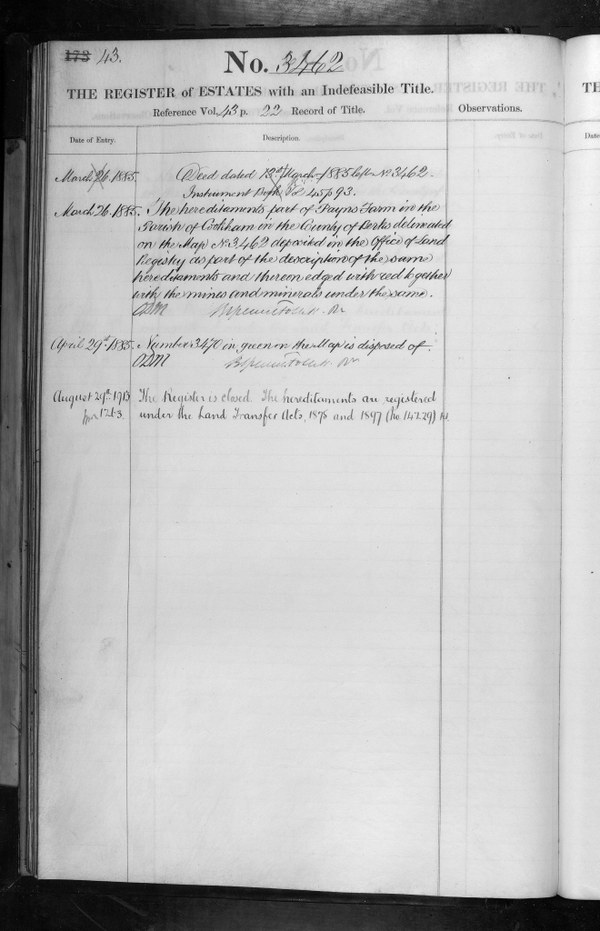 173 43.
No. 3462
THE REGISTER of ESTATES with an Indefeasible Title.
Reference Vol. 43 p. 22 Record of Title.
Observations.
Date of Entry.
Description.
March 26. 1885. Deed dated 12th March 1885 left No 3462.
Instrument Book Vol 45 p 93.
March 26. 1885. The hereditaments part of Payns Farm in the
Parish of Cookham in the County of Berks delineated
on the Map No 3,462 deposited in the Office of Land
Registry as part of the description of the same
hereditaments and thereon edged with red together
with the mines and minerals under the same.
April 29th 1885. Number 3470 in green on the Map is disposed of.
August 29th 1913 The Register is closed. The hereditaments are registered
under the Land Transfer Acts, 1875 and 1897 (No. 142.291)
THE REGISTER
TH
Date